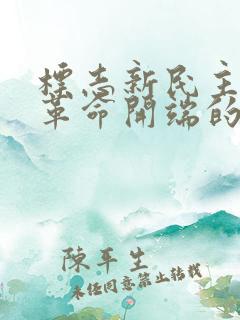 標志新民主
革命開端的
陳平生
未经同意禁止转载